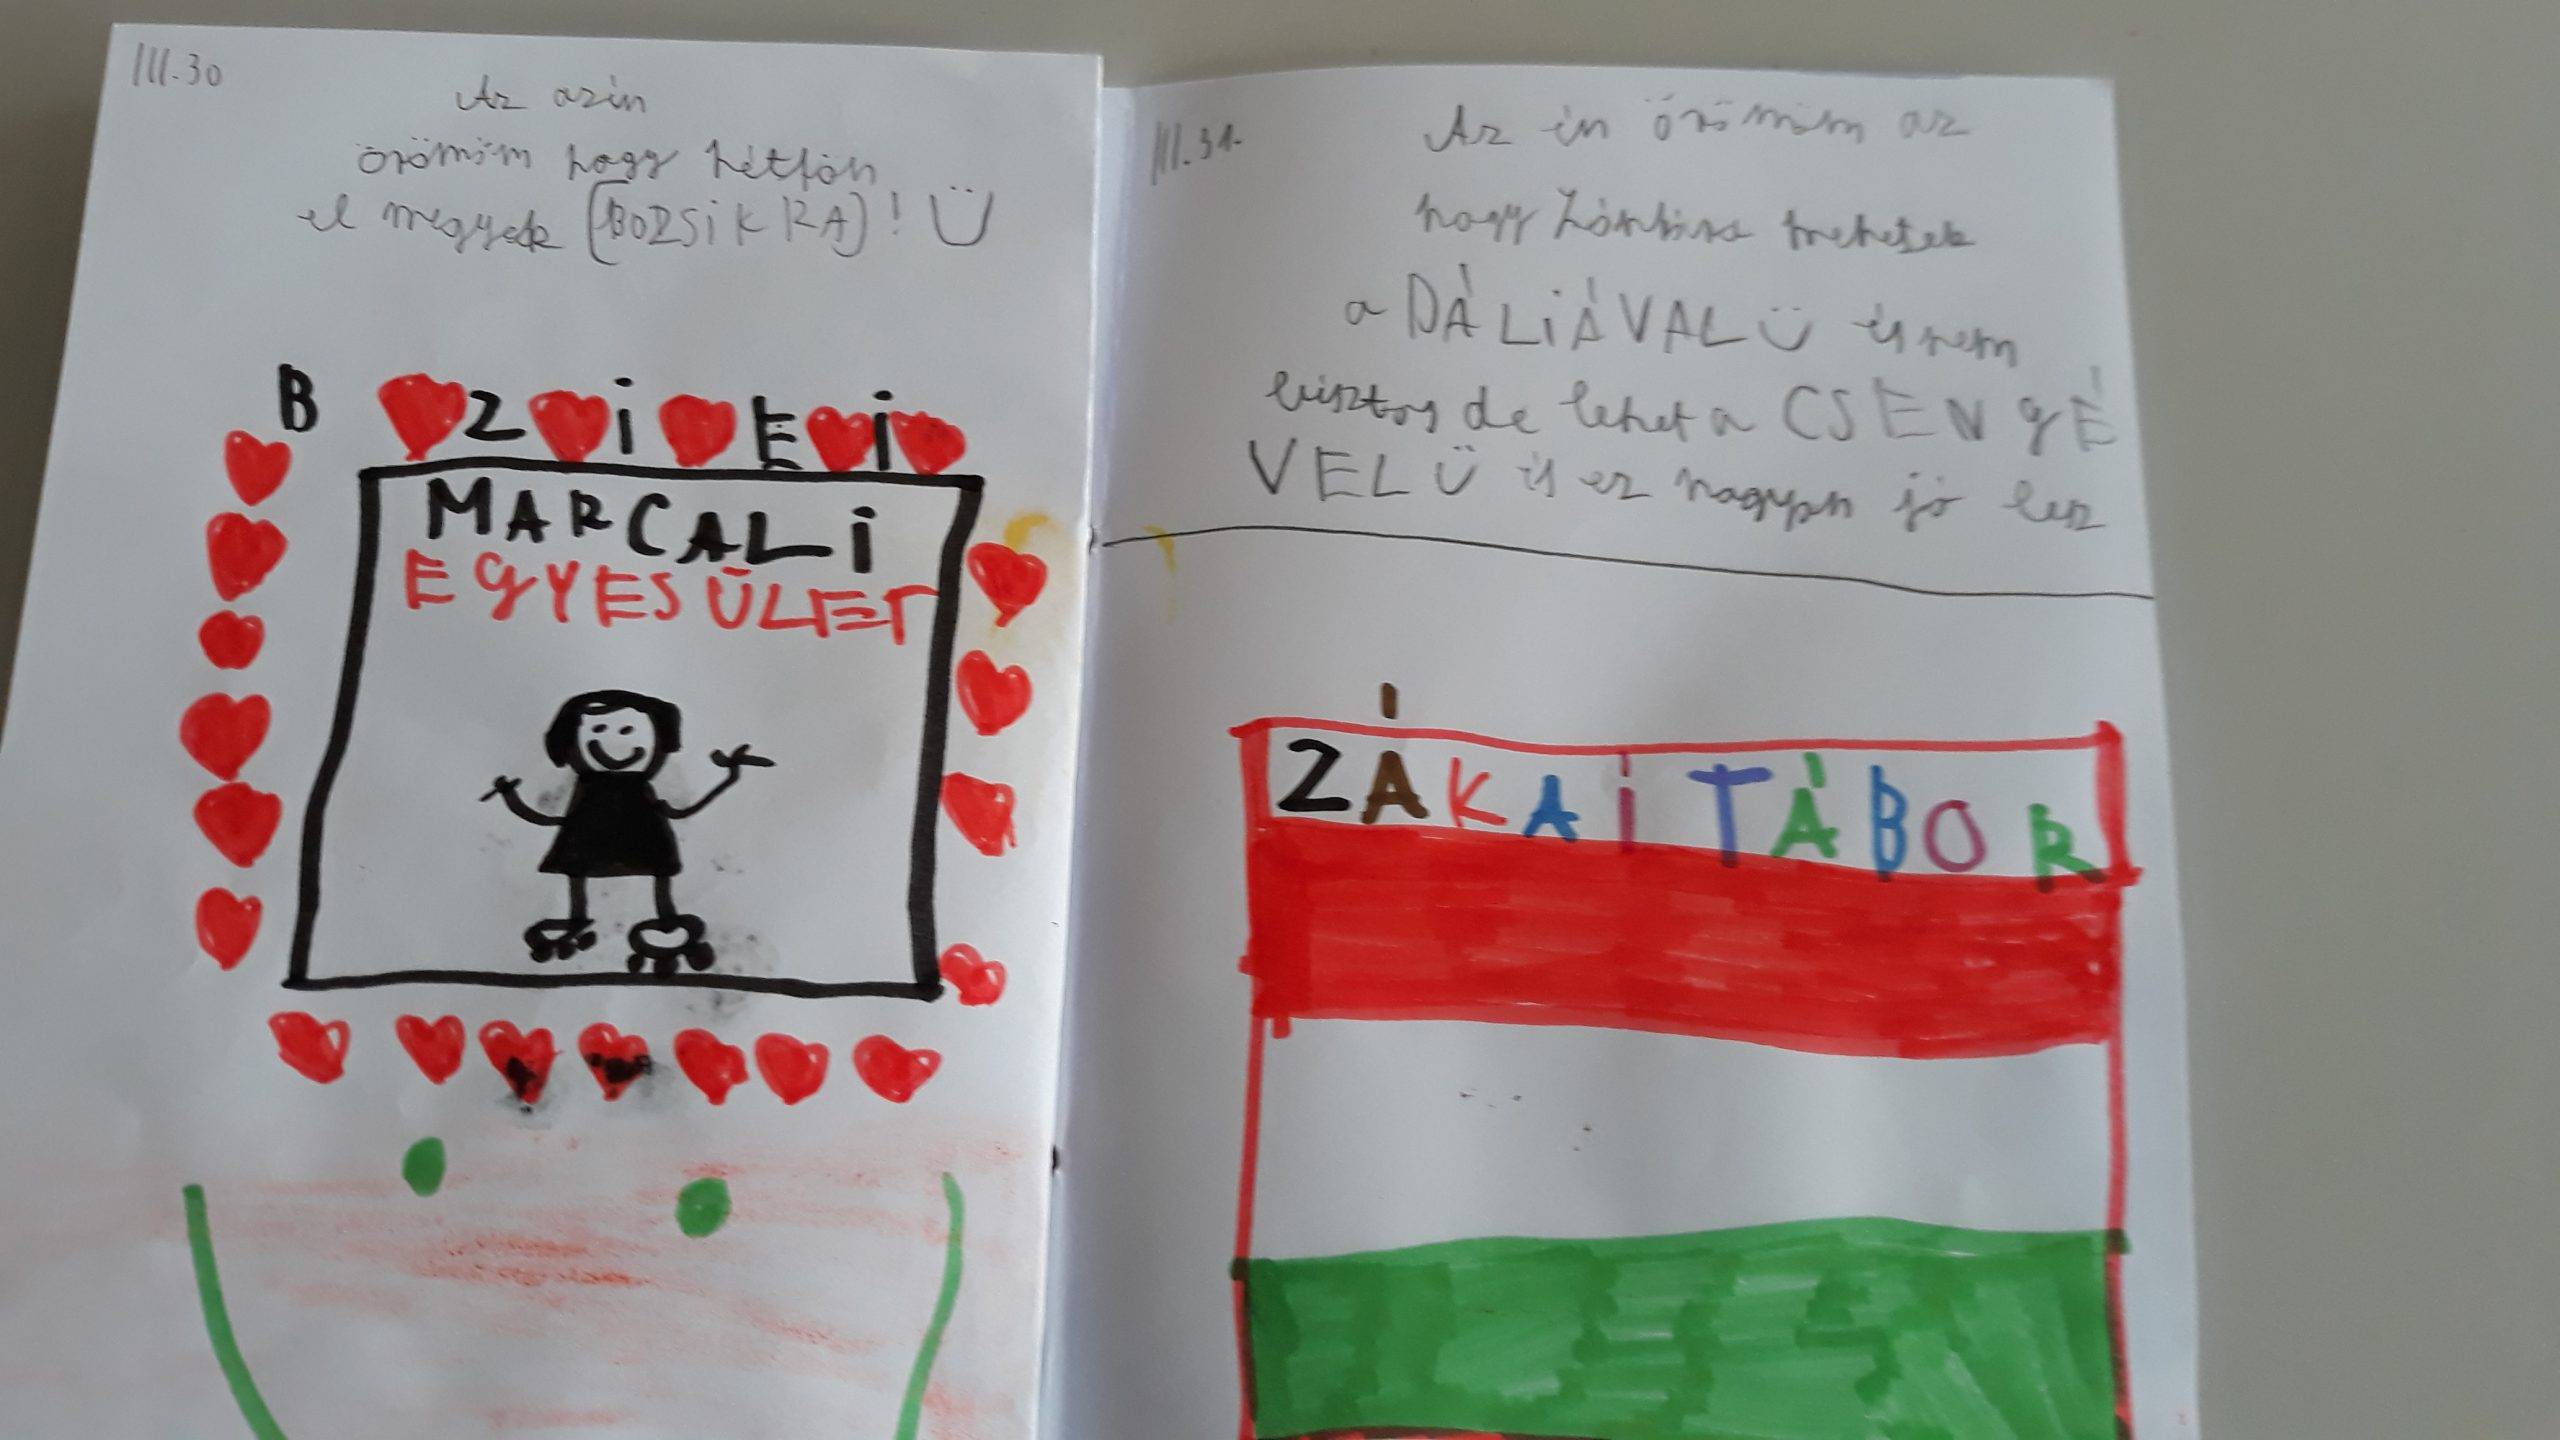 III.30
Az azin
örömöm hogy hétfőn
el megyek (BOZSiKRA)! Ü
B Z i E i
MARCALi
EGYESÜLET
III.31.
Az én örömöm az
hogy mehetek
a DÁLiÁVAL Ü és nem
bisztos de lehet a CSENgÉ
VEL Ü és ez nagyon jó lesz
ZÁKAi TÁBOR